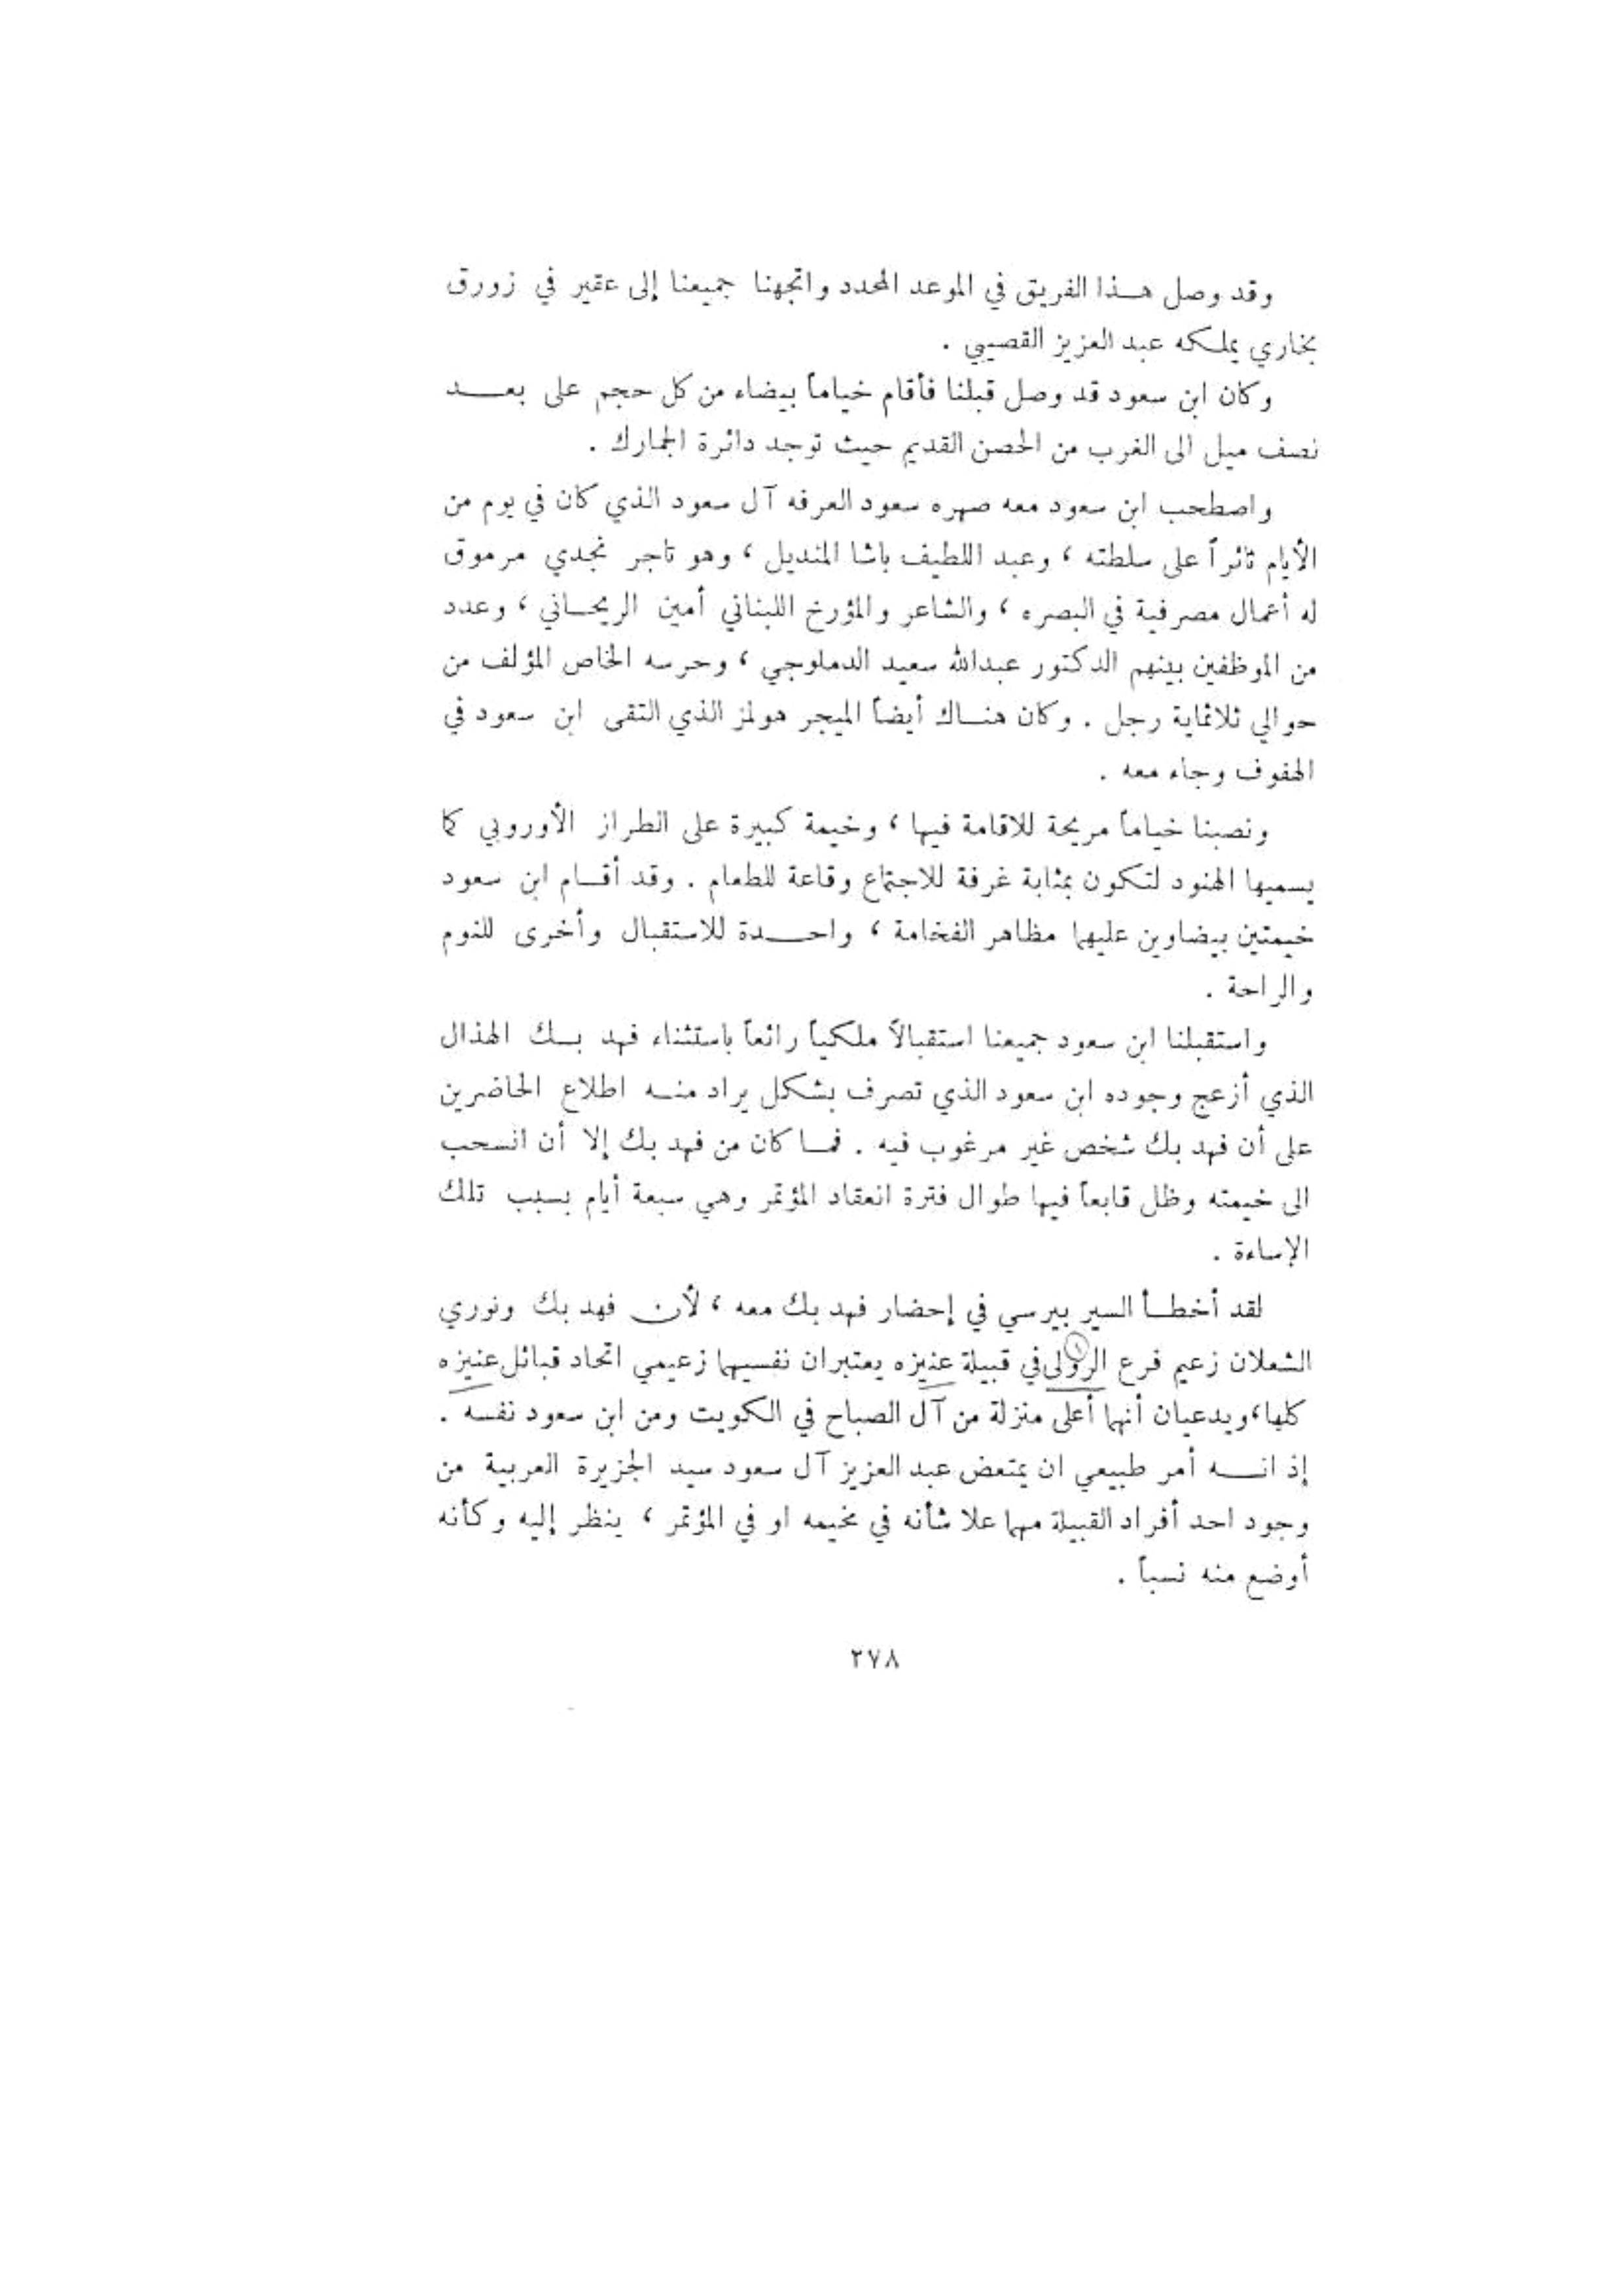 وقد وصل هـذا الفريق في الموعد المحدد واتجهنا جميعنا إلى عقير في زورق
بخاري يملكه عبد العزيز القصيبي .
وكان ابن سعود قد وصل قبلنا فأقام خياماً بيضاء من كل حجم على بعـد
نصف ميل الى الغرب من الحصن القديم حيث توجد دائرة الجمارك .
واصطحب ابن سعود معه صهره سعود العرفه آل سعود الذي كان في يوم من
الأيام ثائراً على سلطته ، وعبد اللطيف باشا المنديل ، وهو تاجر نجدي مرموق
له أعمال مصرفية في البصره ، والشاعر والمؤرخ اللبناني أمين الريحـاني ، وعدد
من الموظفين بينهم الدكتور عبدالله سعيد الدملوجي ، وحرسه الخاص المؤلف من
حوالي ثلاثماية رجل . وكان هنـاك أيضاً الميجر هولمز الذي التقى ابن سعود في
الهفوف وجاء معه .
ونصبنا خياماً مريحة للاقامة فيها ، وخيمة كبيرة على الطراز الأوروبي كما
يسميها الهنود لتكون بمثابة غرفة للاجتماع وقاعة للطعام . وقد أقـام ابن سعود
خيمتين بيضاوين عليهما مظاهر الفخامة ، واحـدة للاستقبال وأخرى للنوم
والراحة .
واستقبلنا ابن سعود جميعنا استقبالاً ملكياً رائعاً باستثناء فهد بـك الهذال
الذي أزعج وجوده ابن سعود الذي تصرف بشكل يراد منـه اطلاع الحاضرين
على أن فهد بك شخص غير مرغوب فيه . فمـا كان من فهد بك إلا أن انسحب
الى خيمته وظل قابعاً فيها طوال فترة انعقاد المؤتمر وهي سبعة أيام بسبب تلك
الإساءة .
لقد أخطـأ السير بيرسي في إحضار فهد بك معه ، لأن فهد بك ونوري
الشعلان زعيم فرع الرولى في قبيلة عنيزه يعتبران نفسيهما زعيمي اتحاد قبائل عنيزه
كلها، ويدعيان أنهما أعلى منزلة من آل الصباح في الكويت ومن ابن سعود نفسه .
إذ انـه أمر طبيعي ان يمتعض عبد العزيز آل سعود سيد الجزيرة العربية من
وجود احد أفراد القبيلة مهما علا شأنه في مخيمه او في المؤتمر ، ينظر إليه وكأنه
أوضع منه نسباً .
٢٧٨